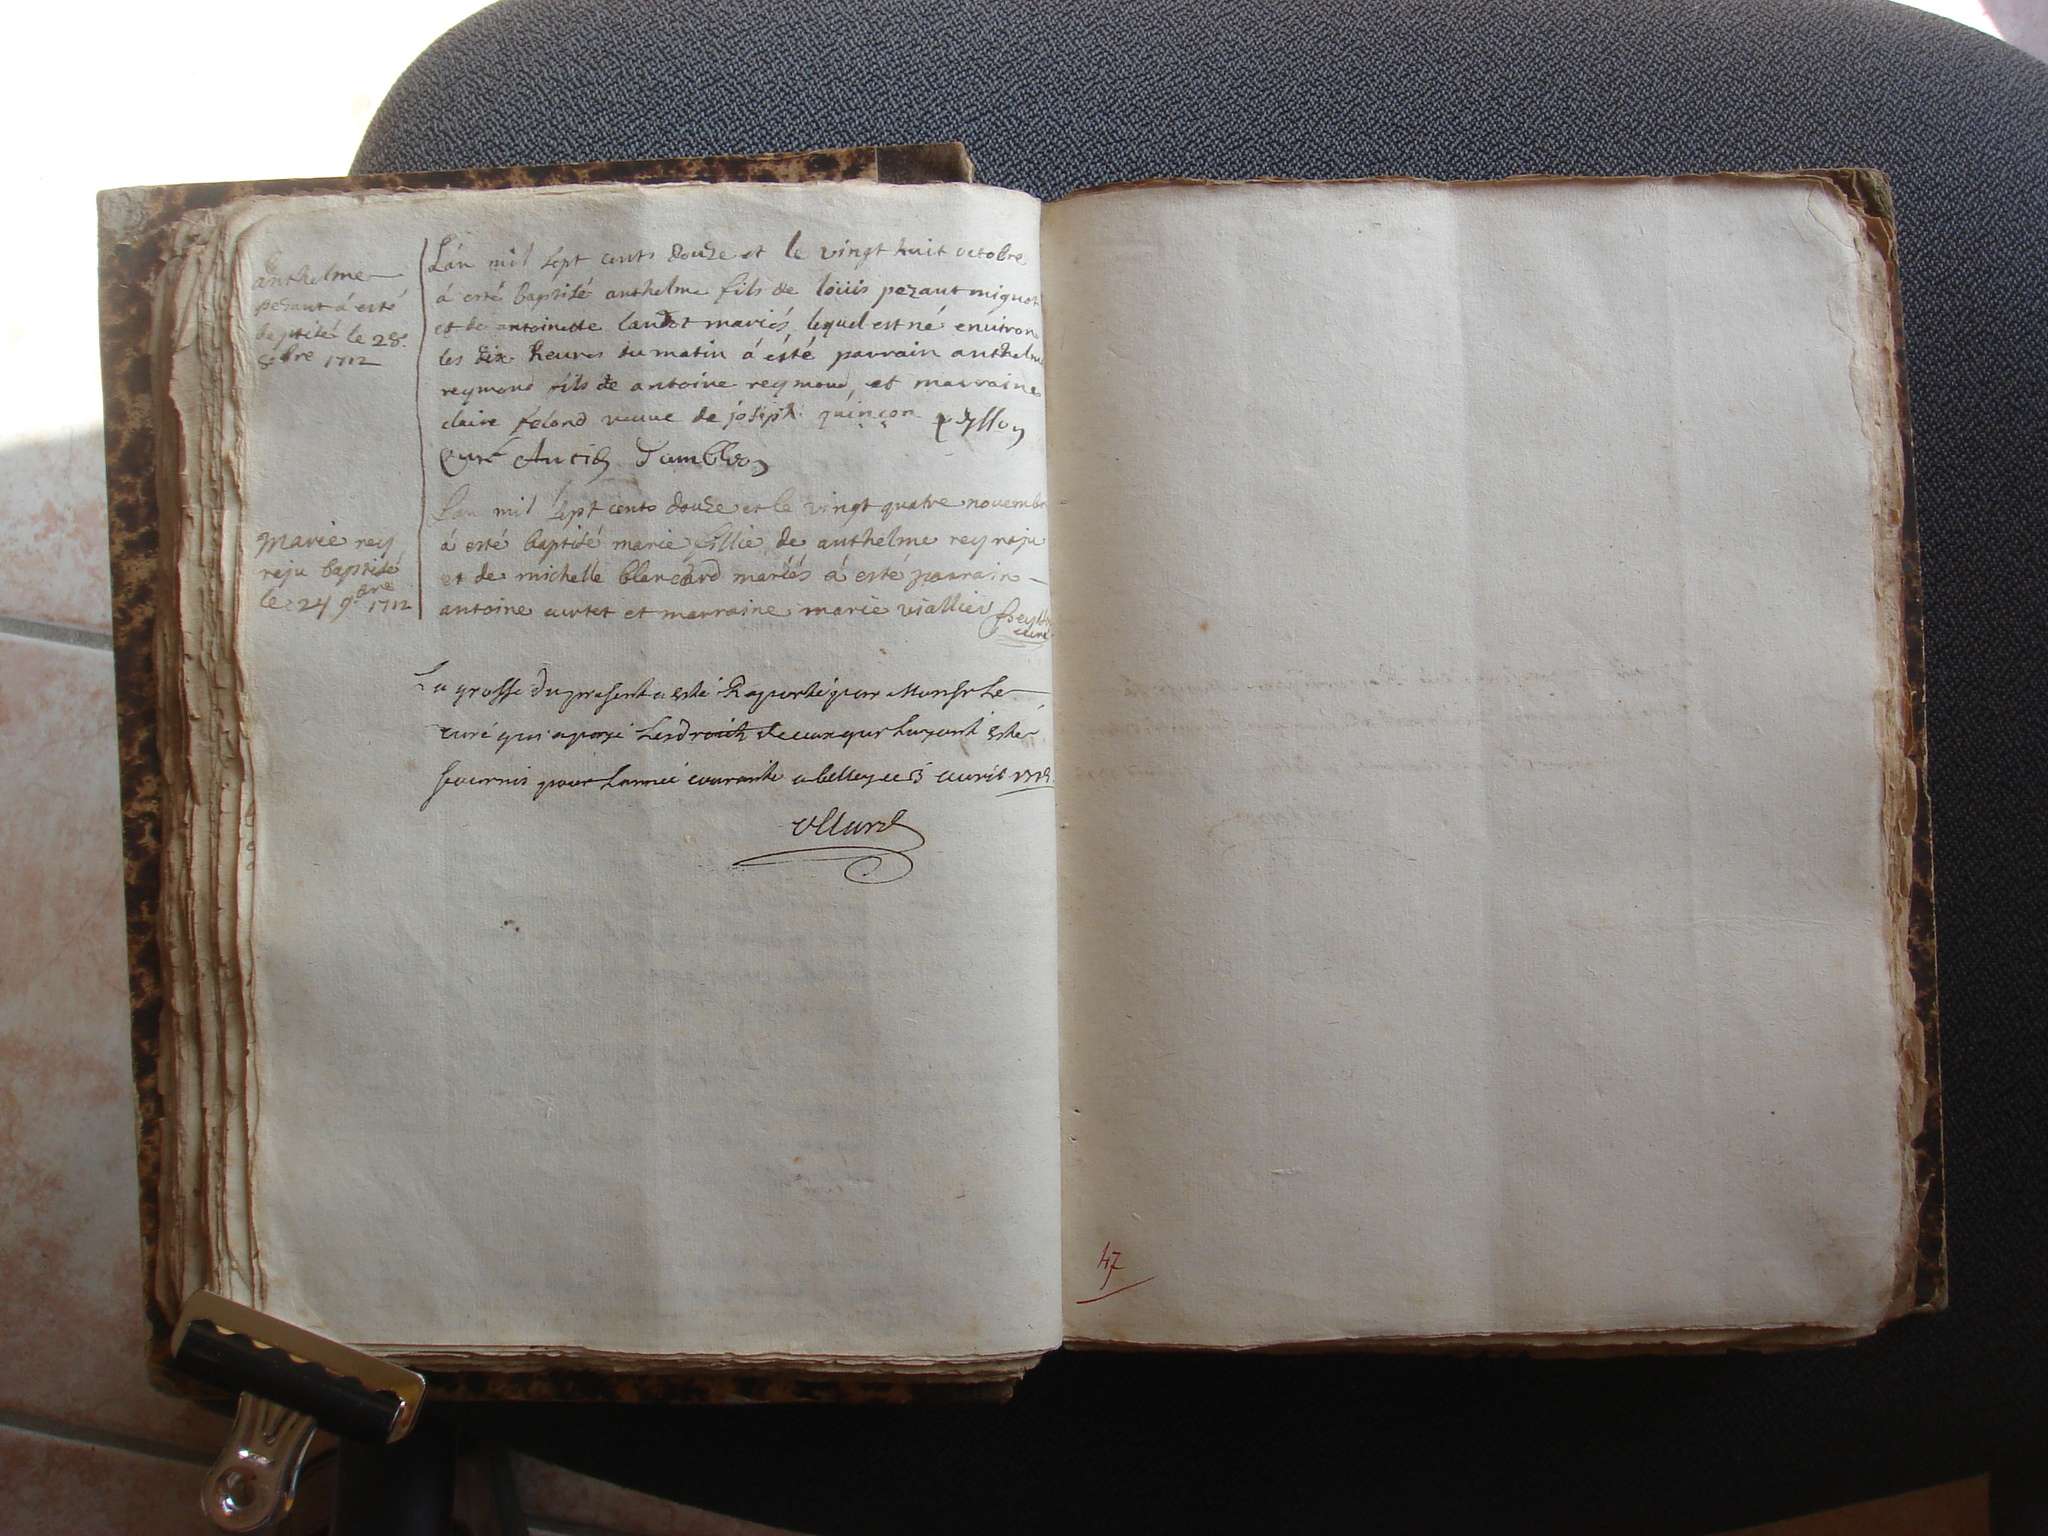 anthelme
pezant á esté
baptisé le 28e
8obre 1712
L'an mil sept cents douze et le vingt huit octobre
á esté baptisé anthelme fils de loüis pezant mignot
et de antoinette landot mariés, lequel est né environ
les dix heures du matin á ésté parrain anthelme
reymond fils de antoine reymond et marraine
claire feland veuve de joseph quinçon
Curé
Marie rey
reju baptisé
le 24 9bre 1712
L'an mil sept cents douze et le vingt quatre novembre
á esté baptisé marie fillie de anthelme rey reju
et de michelle blanchard mariés á esté parrain
antoine curtet et marraine marie viallier
curé
La grosse du present a esté Raporté par Monsr Le
curé qui a payé Les droits de ceux qui luy ont esté
fournis pour Lannée courante a belley ce 3 avril
47